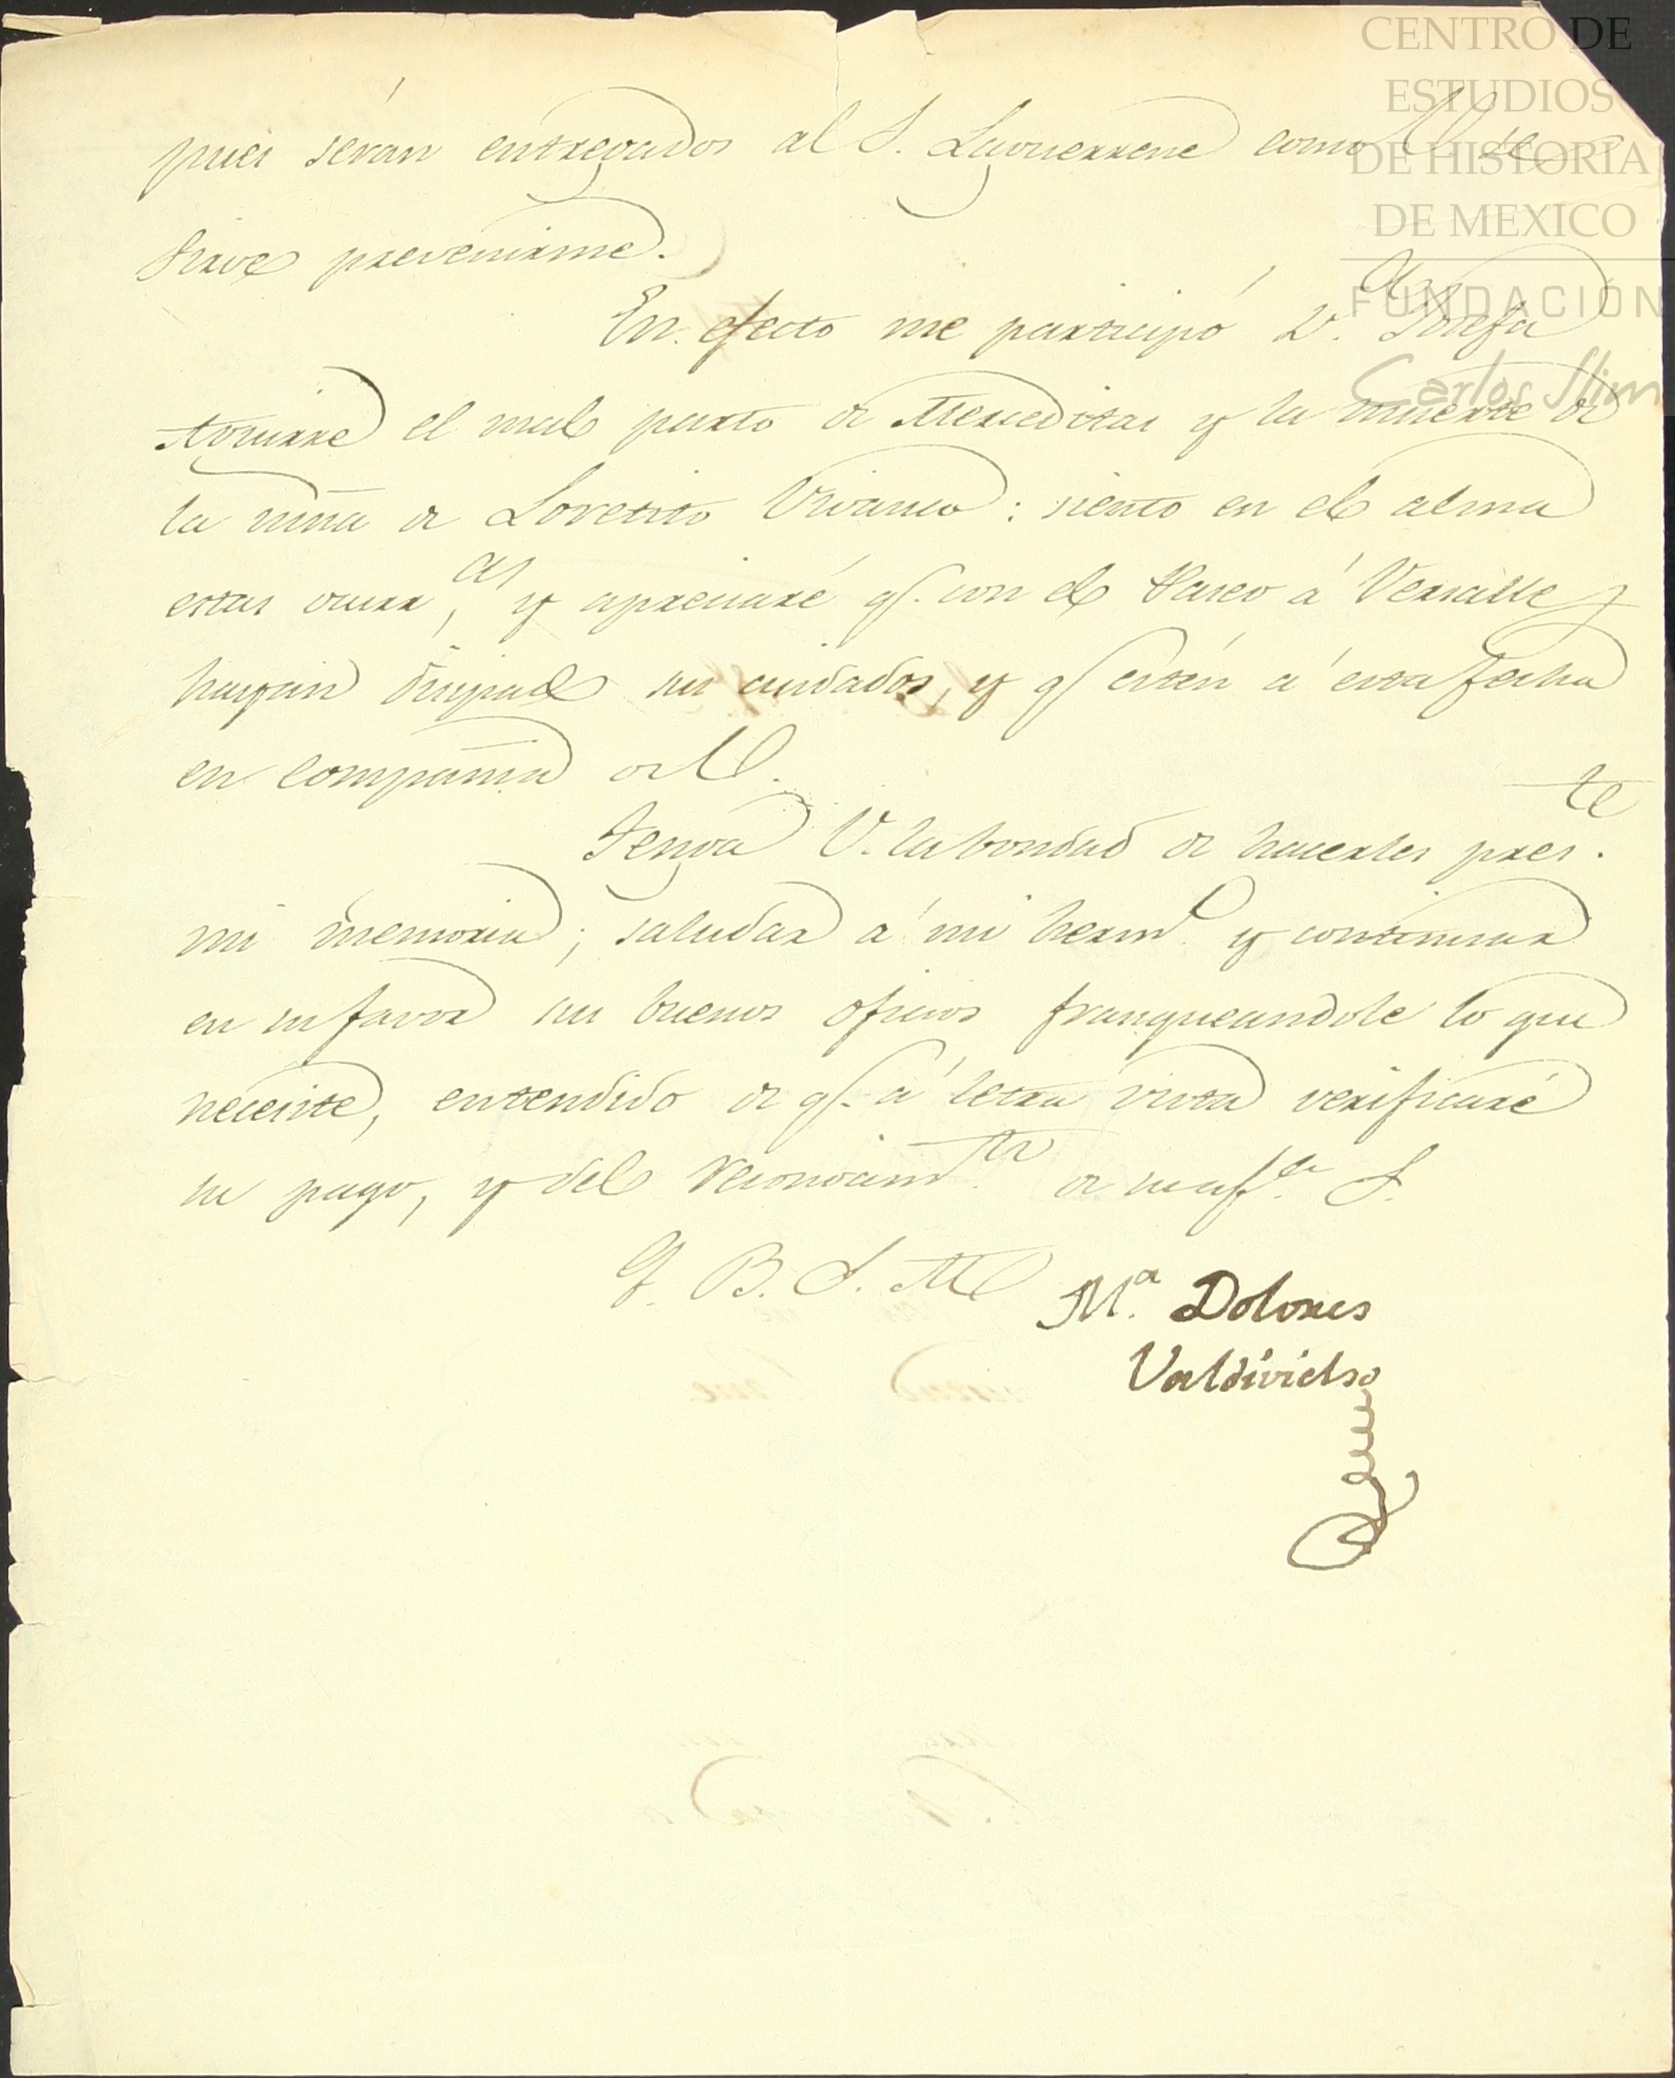 CENTRO DE
ESTUDIOS
DE HISTORIA
DE MEXICO
FUNDACIÓN
Carlos Slim
pues serán entregados al S. Laguerrene como V. se
sirve prevenirme.
En efecto me participó D.ª Josefa
Aguirre el mal parto de Merceditas y la muerte de
la niña de Loretito Vivanco: siento en el alma
estas ocurr.as, y apreciaré q.e con el Paseo á Versalles
hayan disipado sus cuidados, y q.e estén á esta fecha
en compañia de V.
Tenga V. la bondad de hacerles pres.te
mi memoria; saludar á mi herm.o y continuar
en su favor sus buenos oficios franqueandole lo que
necesite, entendido de q.e á letra vista verificaré
su pago, y del reconocim.to de su af.ta S.
Q. B. S. M.
M.ª Dolores
Valdivielso